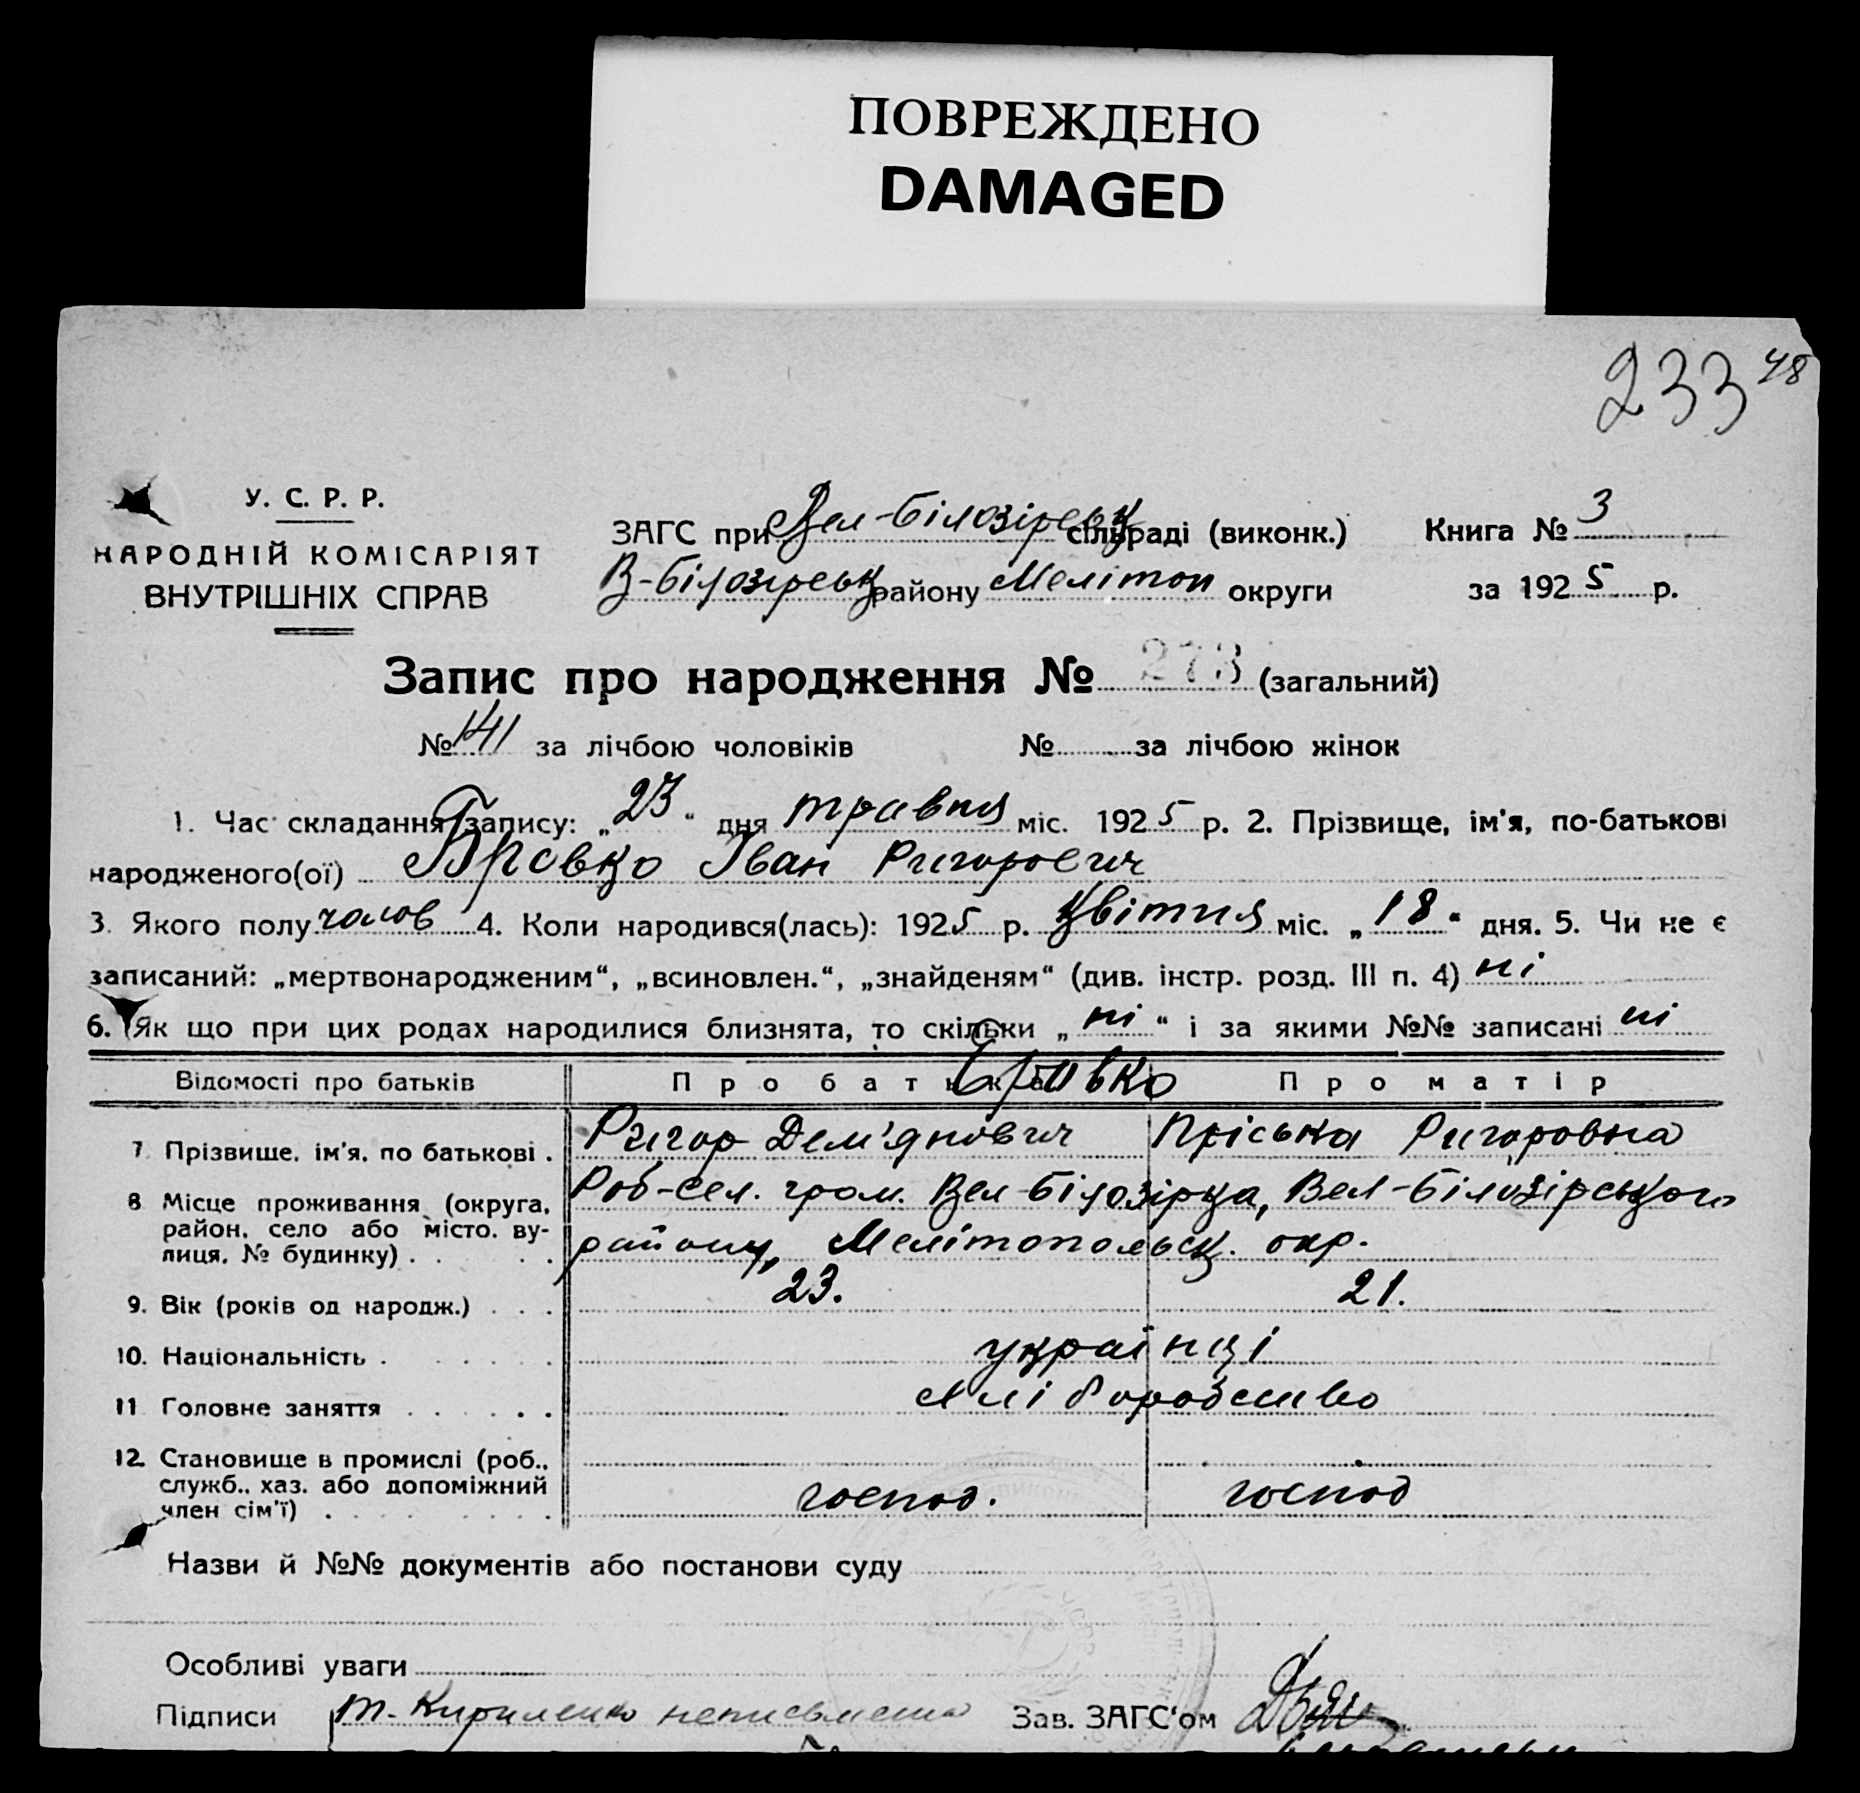 ПОВРЕЖДЕНО
DAMAGED
233 48
У. С. Р. Р.
НАРОДНІЙ КОМІСАРІЯТ
ВНУТРІШНІХ СПРАВ
ЗАГС при Вел-білозірськ сільраді (виконк.) Книга № 3
В-білозірськ району Мелітоп округи за 1925 р.
Запис про народження № 273 (загальний)
№ 141 за лічбою чоловіків № за лічбою жінок
1. Час складання запису: „23“ дня травня міс. 1925 р. 2. Прізвище, ім'я, по-батькові
народженого(ої) Бровко Іван Ригорович
3. Якого полу чолов 4. Коли народився(лась): 1925 р. Цвітня міс. „18“ дня. 5. Чи не є
записаний: „мертвонародженим“, „всиновлен.“, „знайденям“ (див. інстр. розд. III п. 4) ні
6. Як що при цих родах народилися близнята, то скільки „ні“ і за якими №№ записані ні
Відомості про батьків Про батька Бровко Про матір
7 Прізвище, ім'я, по батькові . Ригор Дем'янович Пріська Ригоровна
8 Місце проживання (округа, Роб-сел. гром. Вел-білозірка, Вел-білозірського
район, село або місто, ву-
лиця, № будинку) . . . . району, Мелітопольськ. окр.
9. Вік (років од народж.) . . . 23. 21.
10. Національність . . . . . українці
11 Головне заняття . . . . . хліборобство
12. Становище в промислі (роб.,
служб., хаз. або допоміжний
член сім'ї) . . . . . . . господ. господ
Назви й №№ документів або постанови суду
Особливі уваги
Підписи Т. Кириленко неписьменна Зав. ЗАГС'ом